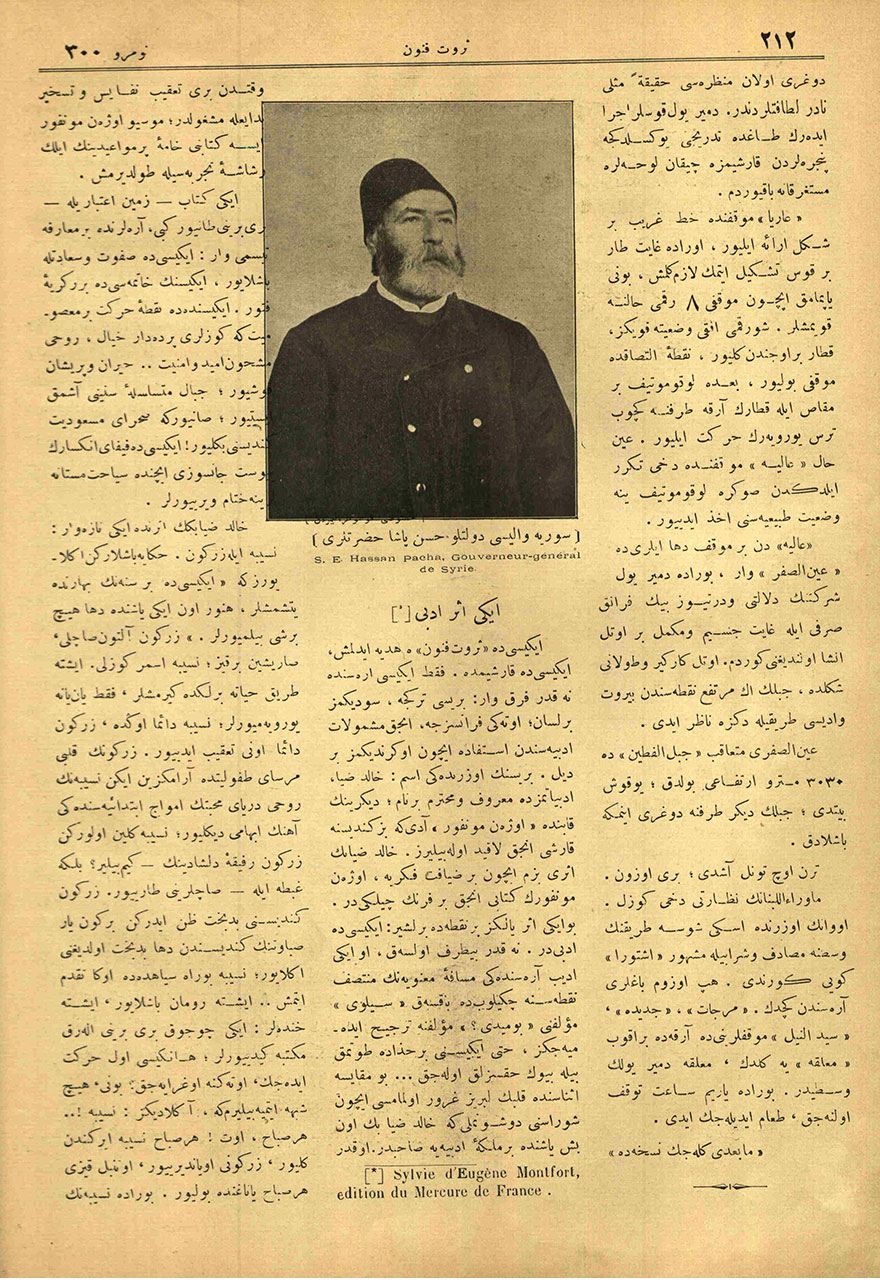 ٢١٢
ثروت فنون
نومرو ٣٠٠
دوغری اولان منظره‌سی حقیقةً مثلی
نادر لطافتلردندر. دمیر یول قوسلر اجرا
ایده‌رك طاغده تدریجی یوکسلدکجه
پنجره‌لردن قارشیمزه چیقان لوحه‌لره
مستغرقانه باقیوردم .
« عاریا » موقفنده خط غریب بر
شکل ارائه ایلیور ، اوراده غایت طار
بر قوس تشکیل ایتمك لازم‌کلمش ، بونی
یاپمامق ایچون موقفی ٨ رقمی حالنه
قویمشلر . شو رقمی افقی وضعیته قویکز،
قطار بر اوجندن کلیور ، نقطهٔ التصاقده
موقفی بولیور ، بعده لوقوموتیف بر
مقاص ایله قطارك آرقه طرفنه کچوب
ترس یورویه‌رك حرکت ایلیور . عین
حال « عالیه » موقفنده دخی تکرر
ایلدکدن صوکره لوقوموتیف ینه
وضعیت طبیعیه‌سنی اخذ ایدییور .
«عالیه» دن بر موقف دها ایلری‌ده
« عین‌الصفر » وار ، بوراده دمیر یول
شرکتنك دلالتی ودرتیوز بیك فرانق
صرفی ایله غایت جسیم ومکمل بر اوتل
انشا اولندیغنی کوردم. اوتل کارکیر وطولانی
شکلده ، جبلك اك مرتفع نقطه‌سندن بیروت
وادیسی طریقیله دکزه ناظر ایدی .
عین‌الصفری متعاقب « جبل الفطین » ده
٣٠٣٠ مترو ارتفاعی بولدق ؛ یوقوش
بیتدی ؛ جبلك دیکر طرفنه دوغری اینمکه
باشلادق .
ترن اوچ تونل آشدی ؛ بری اوزون .
ماوراءاللبنانك نظارتی دخی کوزل .
اووانك اوزرنده اسکی شوسه طریقنك
وسطنه مصادف وشرابیله مشهور « اشتورا »
کویی کورندی . هپ اوزوم باغلری
آره‌سندن کچدك . « مرجات » ، « جدیده » ،
« سید النیل » موقفلرینی‌ده آرقه‌ده براقوب
« معلقه » یه کلدك ، معلقه دمیر یولك
وسطیدر . بوراده یاریم ساعت توقف
اولنه‌جق ، طعام ایدیله‌جك ایدی .
« مابعدی کله‌جك نسخه‌ده »
( سوریه والیسی دولتلو حسن پاشا حضرتلری )
S. E. Hassan pacha, Gouverneur-général
de Syrie.
ایکی اثر ادبی [*]
ایکیسی‌ده «ثروت فنون» ه هدیه ایدلمش،
ایکیسی‌ده قارشیمده . فقط ایکیسی اره‌سنده
نه قدر فرق وار: بریسی ترکجه ، سودیکمز
بر لسان؛ اوته‌کی فرانسزجه، انجق مشمولات
ادبیه‌سندن استفاده ایچون اوکرندیکمز بر
دیل . بریسنك اوزرنده‌کی اسم : خالد ضیا،
ادبیاتمزده معروف ومحترم برنام ؛ دیکرینك
قابنده « اوژه‌ن مونفور » آدی‌که بزکندیسنه
قارشی انجق لاقید اوله‌بیلیرز. خالد ضیانك
اثری بزم ایچون بر ضیافت فکریه ، اوژه‌ن
مونفورك کتابی انجق بر فرنك چیلکی‌در .
بو ایکی اثر یالکز بر نقطه‌ده برلشیر: ایکیسی‌ده
ادبی‌در . نه قدر بیطرف اولسه‌ق ، او ایکی
ادیب آره‌سنده‌کی مسافهٔ معنویه‌نك منتصف
نقطه‌سنه چکیلوب‌ده باقسه‌ق « سیلوی »
مؤلفنی « بومیدی؟ » مؤلفنه ترجیح ایده‌ـ
میه‌جکز ، حتی ایکیسنی بر حذاده طوتمق
بیله بیوك حقسزلق اوله‌جق ... بو مقایسه
اثناسنده قلبك لبریز غرور اولمامسی ایچون
شوراسنی دوشونملی‌که خالد ضیا بك اون
بش یاشنده بر ملکهٔ ادبیه‌یه صاحبدر. او قدر
[*] Sylvie d'Eugène Montfort,
edition du Mercure de France .
وقتدن بری تعقیب نفایس و تسخیر
بدایعله مشغولدر؛ موسیو اوژه‌ن مونفور
ایسه کتابنی خامهٔ پر مواعیدینك ایلك
رشاشهٔ تجربه‌سیله طولدیرمش .
ایکی کتاب — زمین اعتباریله —
بری برینی طانیور کبی، آره‌لرنده بر معارفه
قسمی وار : ایکیسی‌ده صفوت وسعادتله
باشلایور ، ایکیسنك خاتمه‌سی‌ده بر رکریهٔ
فتور . ایکیسنده‌ده نقطهٔ حرکت بر معصوـ
میت‌که کوزلری پرده‌دار خیال ، روحی
مشحون امید وامنیت .. حیران وپریشان
قوشیور ؛ جبال متسلسلهٔ سنینی آشمق
ایستیور ؛ صانیورکه صحرای مسعودیت
کندیسنی بکلیور! ایکیسی‌ده فیفای انکسارك
ینه ختام ویرییورلر .
خالد ضیابك اثرنده ایکی تازه وار :
نسیبه ایله زرکون. حکایه باشلارکن اکلاـ
یورزکه « ایکیسی‌ده بر سنه‌نك بهارنده
یتشمشلر ، هنوز اون ایکی یاشنده دها هیچ
برشی بیلمیورلر . » زرکون آلتون صاچلی،
صاریشین برقیز ؛ نسیبه اسمر کوزلی. ایشته
طریق حیاته برلکده کیرمشلر ، فقط یان یانه
یورویه‌میورلر؛ نسیبه دائما اوکده ، زرکون
دائما اونی تعقیب ایدییور . زرکونك قلبی
مرسای طفولیتده آرامکزین ایکن نسیبه‌نك
روحی دریای محبتك امواج ابتدائیه‌سنده‌کی
آهنك ابهامی دیکلیور؛ نسیبه کلین اولورکن
زرکون رفیقهٔ دلشادینك — کیم‌بیلیر؟ بلکه
غبطه ایله — صاچلرینی طارییور. زرکون
کندیسنی بدبخت ظن ایدرکن برکون یار
صباوتنك کندیسندن دها بدبخت اولدیغنی
اکلایور؛ نسیبه بوراه سیاهده‌ده اوکا تقدم
ایتمش .. ایشته رومان باشلایور ، ایشته
خنده‌لر : ایکی چوجوق بری برینی اله‌رق
مکتبه کیدییورلر ؛ هانکیسی اول حرکت
ایده‌جك، اوته‌کنه اوغرایه‌جق؟ بونی هیچ
شبهه ایتمیه‌بیلیرم‌که ، آکلادیکز : نسیبه !..
هر صباح ، اوت ! هر صباح نسیبه ایرکندن
کلیور ، زرکونی اویاندیرییور ، اوتنبل قیزی
هر صباح یاتاغنده بولیور . بوراده نسیبه‌نك